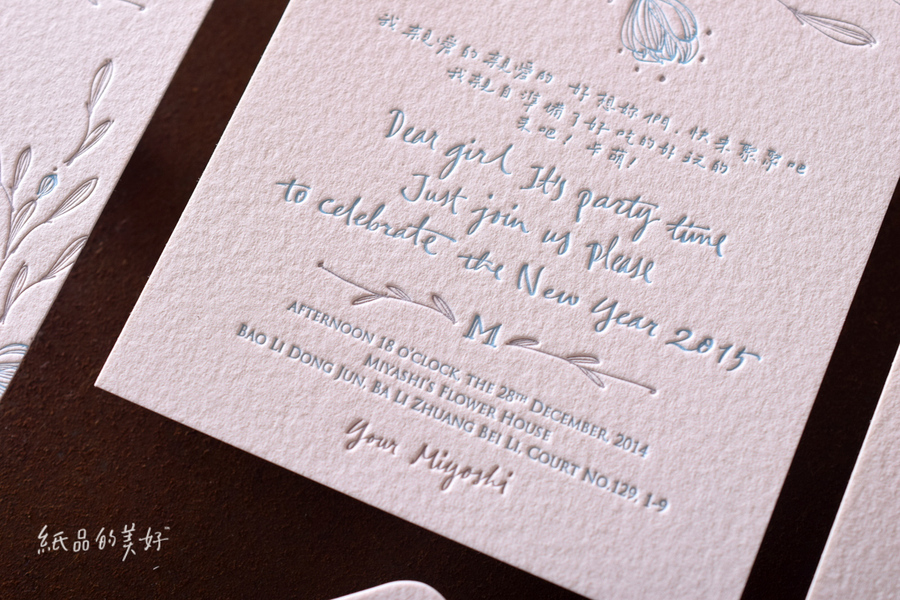 我親愛的親愛的 好想妳們，快來聚聚吧
我親自準備了好吃的好玩的
來吧！卡萌！
Dear girl It's party time
Just join us please
to celebrate the New Year 2015
M
AFTERNOON 18 O'CLOCK, THE 28TH DECEMBER, 2014
MIYASHI'S FLOWER HOUSE
BAO LI DONG JUN, BA LI ZHUANG BEI LI, COURT NO.129, 1-9
Your Miyoshi
紙品的美好